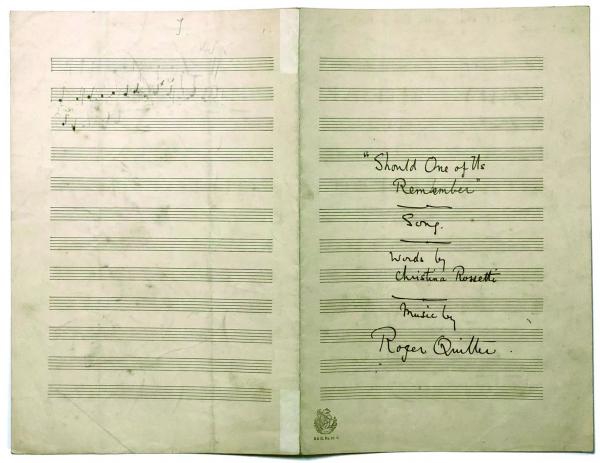 "Should One of Us
Remember"
Song.
Words by
Christina Rossetti
Music by
Roger Quilter.